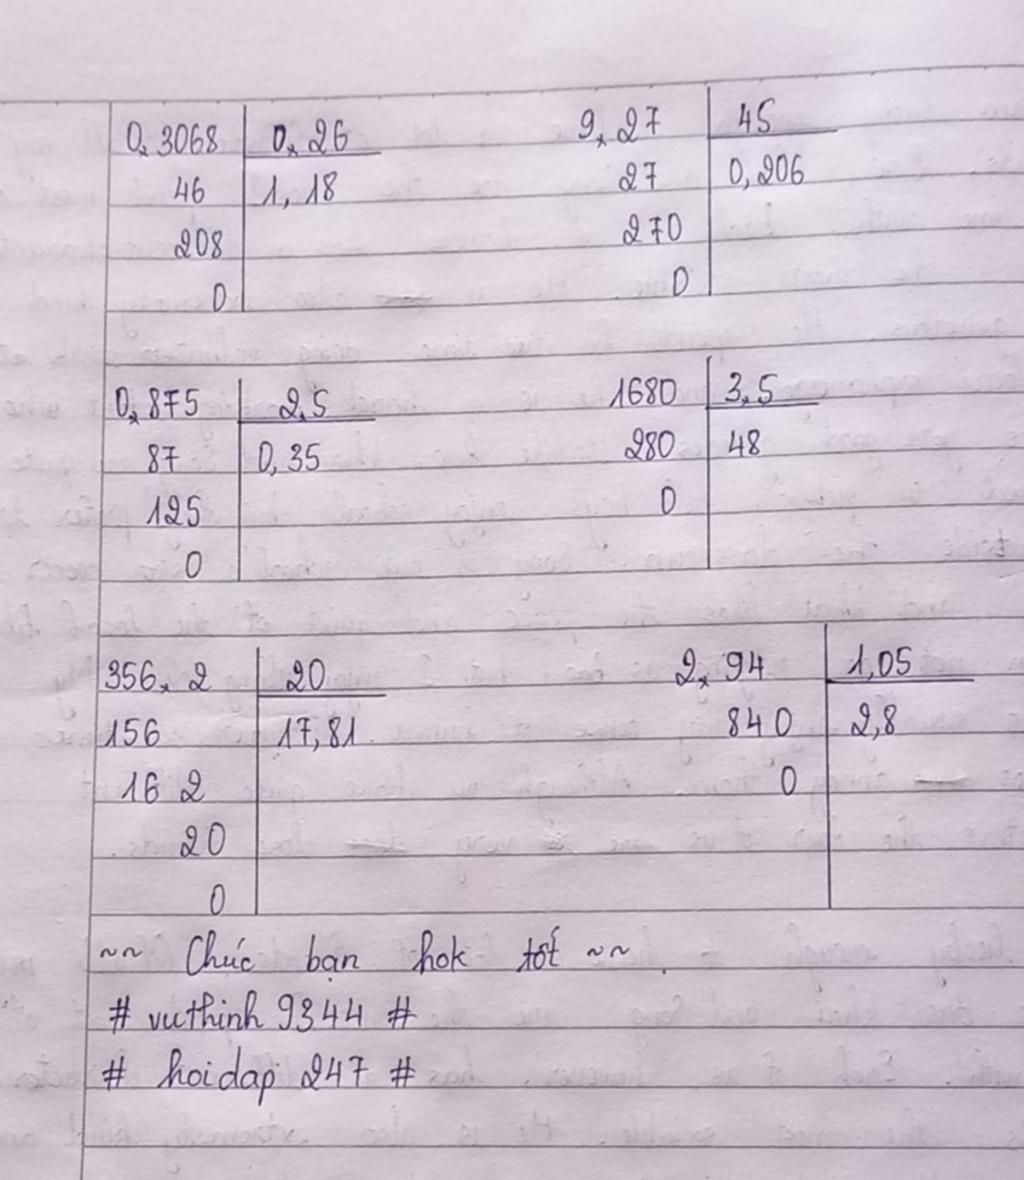 0,3068 0,26
46 1,18
208
0
9,27 45
27 0,206
270
0
0,875 2,5
87 0,35
125
0
1680 3,5
280 48
0
356,2 20
156 17,81
16 2
20
0
2,94 1,05
840 2,8
0
~~ Chúc bạn hok tốt ~~.
# vuthinh 9344 #
# hoidap 247 #